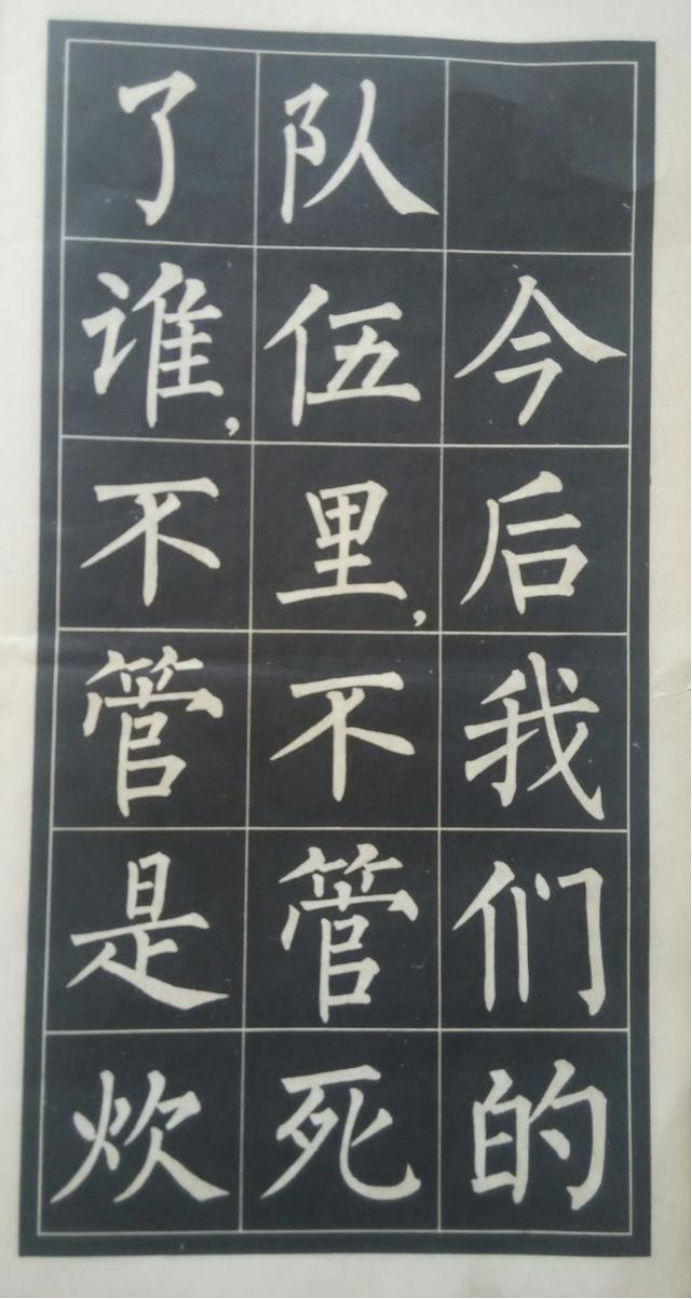 今后我们的
队伍里,不管死
了谁,不管是炊